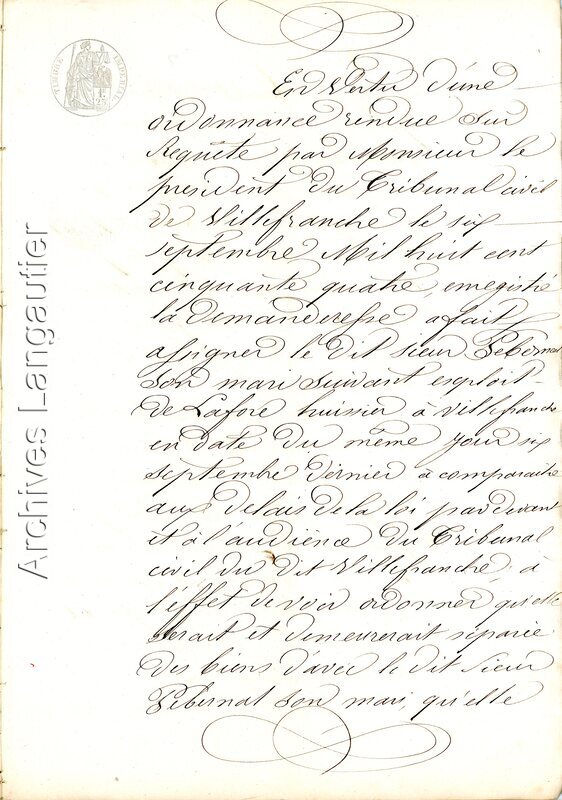 En Vertu d'une
ordonnance rendue sur
Requête par Monsieur le
president du Tribunal civil
de Villefranche le six
septembre Mil huit cent
cinquante quatre, enregistré
la demanderesse a fait
assigner le dit sieur Pebernat
son mari suivant exploit
de Lafore huissier à Villefranche
en date du même jour six
septembre dernier à comparaitre
aux delais de la loi pardevant
et à l'audience du Tribunal
civil du dit Villefranche à
l'effet de voir ordonner qu'elle
serait et demeurerait séparée
des biens d'avec le dit sieur
Pebernat son mari, qu'elle
Archives Langautier
TIMBRE IMPERIAL